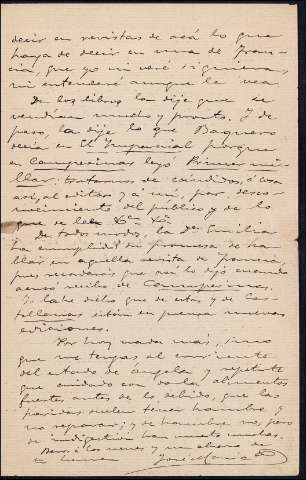 decir en revistas de acá lo que
haya de decir en una de Fran-
cia, que yo ni veré siquiera,
ni entenderé aunque la vea.
De los libros la dije que se
vendían mucho y pronto. Y de
paso, la dije lo que Baquero
decía en El Imparcial porque
en Campesinas leyó Primer mi-
llar: tratarnos de cándidos, ó cosa
así, al editor y á mí, por desco-
nocimiento del público y de lo
que se lee. &
De todos modos, la Dª Emilia
ha cumplido su promesa de ha-
blar en aquella revista de Francia,
pues recordarás que así lo dijo cuando
acusó recibo de Campesinas.
Yo la he dicho que de estas y de Cas-
tellanas están en prensa nuevas
ediciones.
Por hoy nada más, sino
que me tengas al corriente
del estado de Angela y repetirte
que cuidado con darla alimentos
fuertes antes de lo debido, que las
paridas suelen tener hambre y
no reparar; y de hambre no, pero
de indigestión han muerto muchas.
Besos á los nenes y un abrazo de
tu hermano José María